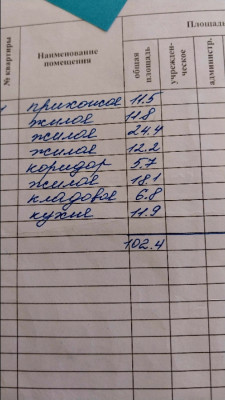 Площадь
№ квартиры
Наименование
помещения
общая
площадь
учрежден-
ческое
администр.
прихожая 11.5
жилая 11.8
жилая 24.4
жилая 12.2
коридор 5.7
жилая 18.1
кладовая 6.8
кухня 11.9
102.4